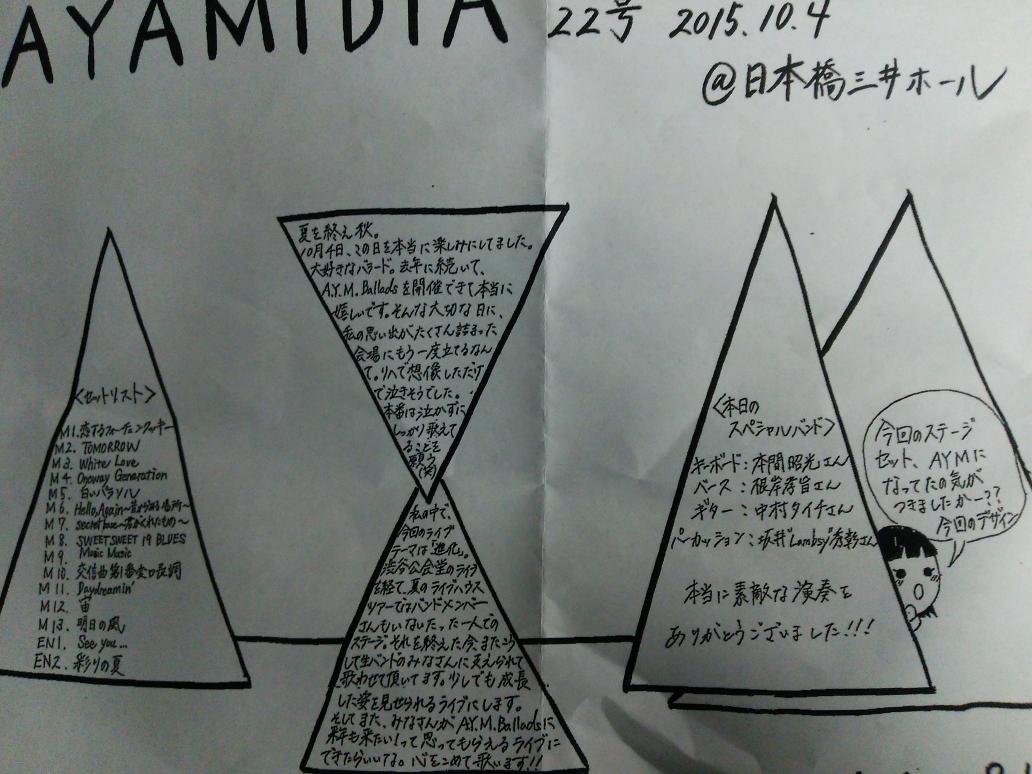 AYAMIDIA
22号 2015.10.4
@日本橋三井ホール
<セットリスト>
M1. 恋するフォーチュンクッキー
M2. TOMORROW
M3. White Love
M4. Oneway Generation
M5. 白いパラソル
M6. Hello,Again〜昔からある場所〜
M7. secret base〜君がくれたもの〜
M8. SWEET SWEET 19 BLUES
M9. Music Music
M10. 交信曲第1番変ロ長調
M11. Daydreamin'
M12. 宙
M13. 明日の風
EN1. See you...
EN2. 彩りの夏
夏を終え秋。
10月4日、この日を本当に楽しみにしてました。
大好きなバラード。去年に続いて、
A.Y.M.Balladsを開催できて本当に
嬉しいです。そんな大切な日に、
私の思い出がたくさん詰まった
会場にもう一度立てるなん
て。リハで想像しただけ
で泣きそうでした。
本番は泣かずに
しっかり歌えて
ることを
願う
(笑)
私の中で、
今回のライブ
テーマは"進化"。
渋谷公会堂のライブ
を経て、夏のライブハウス
ツアーではバンドメンバー
さんもいないたった一人での
ステージ。それを終えた今、またこう
して生バンドのみなさんに支えられて
歌わせて頂いてます。少しでも成長
した姿を見せられるライブにします。
そしてまた、みなさんが A.Y.M.Balladsに
来年も来たい!って思ってもらえるライブに
できたらいいな。心をこめて歌います!!
<本日の
スペシャルバンド>
キーボード:本間昭光さん
ベース:根岸孝旨さん
ギター:中村タイチさん
パーカッション:坂井"Lambsy"秀彰さん
本当に素敵な演奏を
ありがとうございました!!!
今回のステージ
セット、AYMに
なってたの気が
つきましたかー??
今回のデザイン